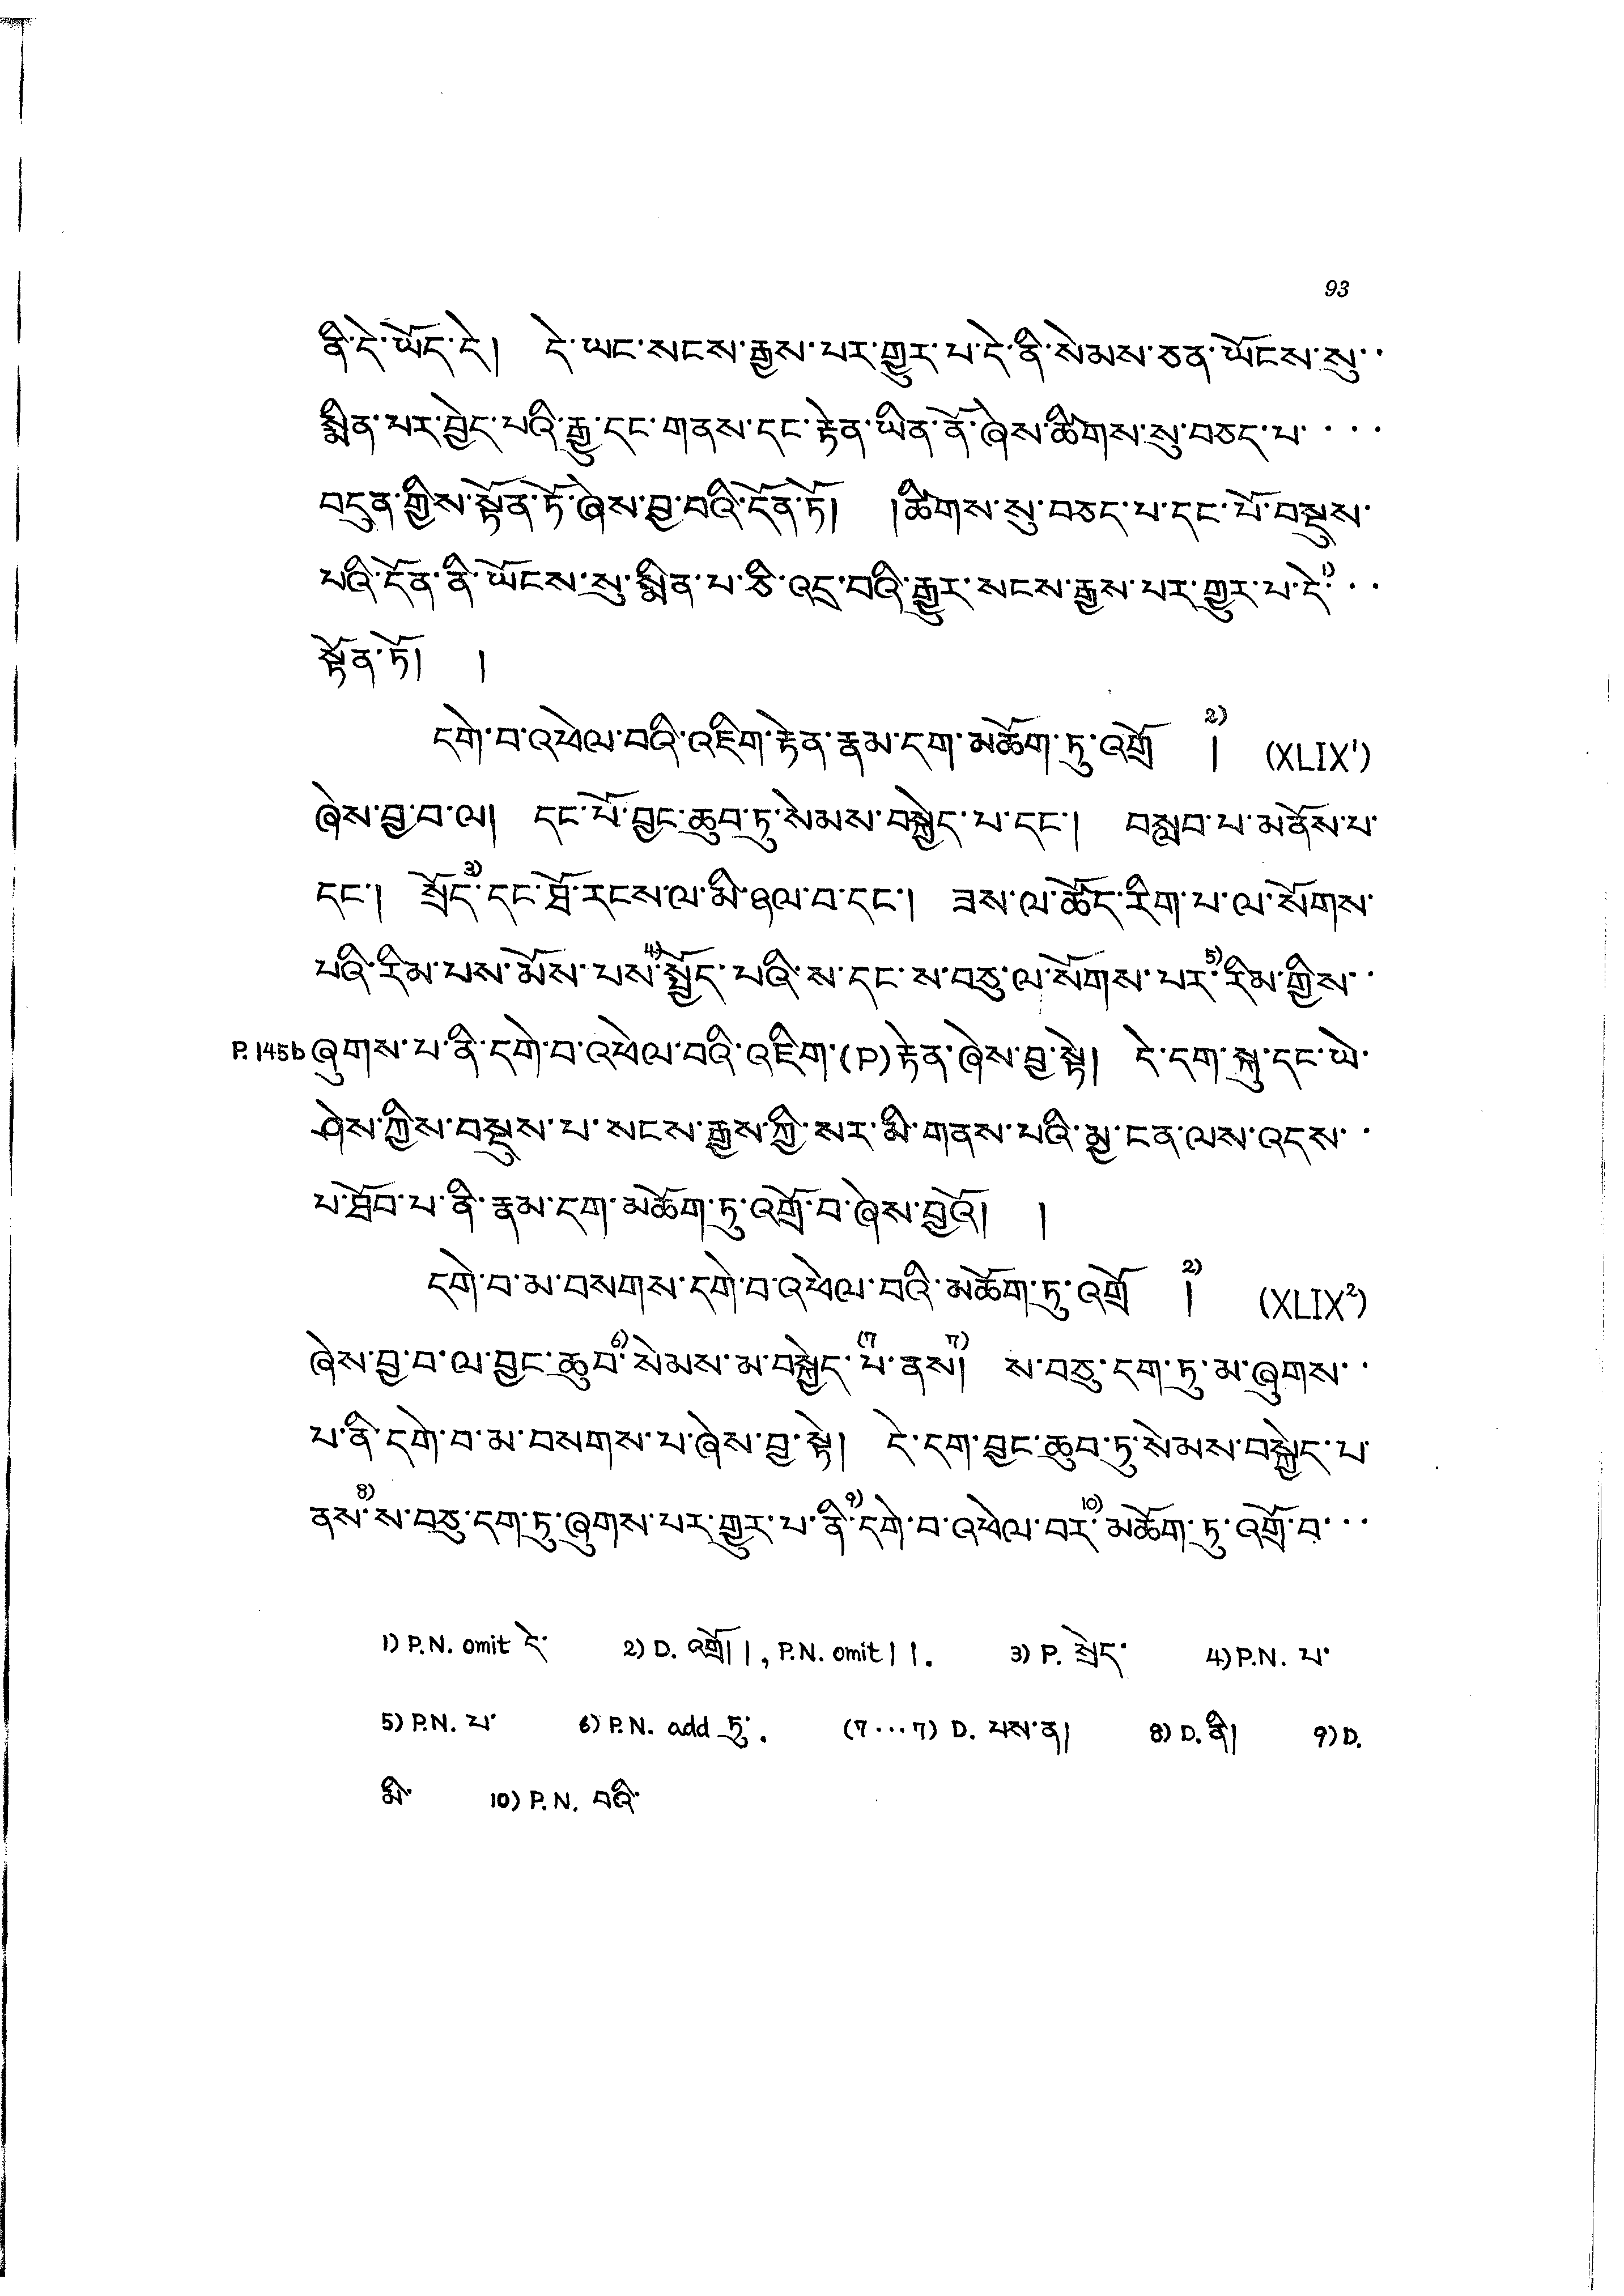 93
ནི་དེ་ཡོད་དེ། དེ་ཡང་སངས་རྒྱས་པར་གྱུར་པ་དེ་ནི་སེམས་ཅན་ཡོངས་སུ་་
སྨིན་པར་བྱེད་པའི་རྒྱུ་དང་གནས་དང་རྟེན་ཡིན་ནོ་ཞེས་ཚིགས་སུ་བཅད་པ་་་་
བདུན་གྱིས་སྟོན་ཏོ་ཞེས་བྱ་བའི་དོན་ཏོ། །ཚིགས་སུ་བཅད་པ་དང་པོ་བསྡུས་
པའི་དོན་ནི་ཡོངས་སུ་སྨིན་པ་ཅི་འདྲ་བའི་རྒྱུར་སངས་རྒྱས་པར་གྱུར་པ་དེ་1)་་
སྟོན་ཏོ། །
དགེ་བ་འཕེལ་བའི་འཇིག་རྟེན་རྣམ་དག་མཆོག་ཏུ་འགྲོ །2) (XLIX¹)
ཞེས་བྱ་བ་ལ། དང་པོ་བྱང་ཆུབ་ཏུ་སེམས་བསྐྱེད་པ་དང་། བསླབ་པ་མནོས་པ་
དང་། སྲོད་3)དང་ཐོ་རངས་ལ་མི་ཉལ་བ་དང་། ཟས་ལ་ཚོད་རིག་པ་ལ་སོགས་
པའི་རིམ་པས་མོས་པས་4)སྤྱོད་པའི་ས་དང་ས་བཅུ་ལ་སོགས་པར་5)རིམ་གྱིས་་
P. 145b ཞུགས་པ་ནི་དགེ་བ་འཕེལ་བའི་འཇིག་(P)རྟེན་ཞེས་བྱ་སྟེ། དེ་དག་སྐུ་དང་ཡེ་
ཤེས་ཀྱིས་བསྡུས་པ་སངས་རྒྱས་ཀྱི་སར་མི་གནས་པའི་མྱ་ངན་ལས་འདས་་
པ་ཐོབ་པ་ནི་རྣམ་དག་མཆོག་ཏུ་འགྲོ་བ་ཞེས་བྱའོ། །
དགེ་བ་མ་བསགས་དགེ་བ་འཕེལ་བའི་མཆོག་ཏུ་འགྲོ །2) (XLIX²)
ཞེས་བྱ་བ་ལ་བྱང་ཆུབ་6)སེམས་མ་བསྐྱེད་(7པ་ནས།7) ས་བཅུ་དག་ཏུ་མ་ཞུགས་་
པ་ནི་དགེ་བ་མ་བསགས་པ་ཞེས་བྱ་སྟེ། དེ་དག་བྱང་ཆུབ་ཏུ་སེམས་བསྐྱེད་པ་
ནས་8)ས་བཅུ་དག་ཏུ་ཞུགས་པར་གྱུར་པ་ནི་9)དགེ་བ་འཕེལ་བར་10)མཆོག་ཏུ་འགྲོ་བ་་་
1) P.N. omit དེ་ 2) D. འགྲོ། །, P.N. omit། །. 3) P. སྲེད་ 4) P.N. པ་
5) P.N. པ་ 6) P.N. add ཏུ་. (7...7) D. པས་ན། 8) D. ནི། 9) D.
མི་ 10) P.N. བའི་